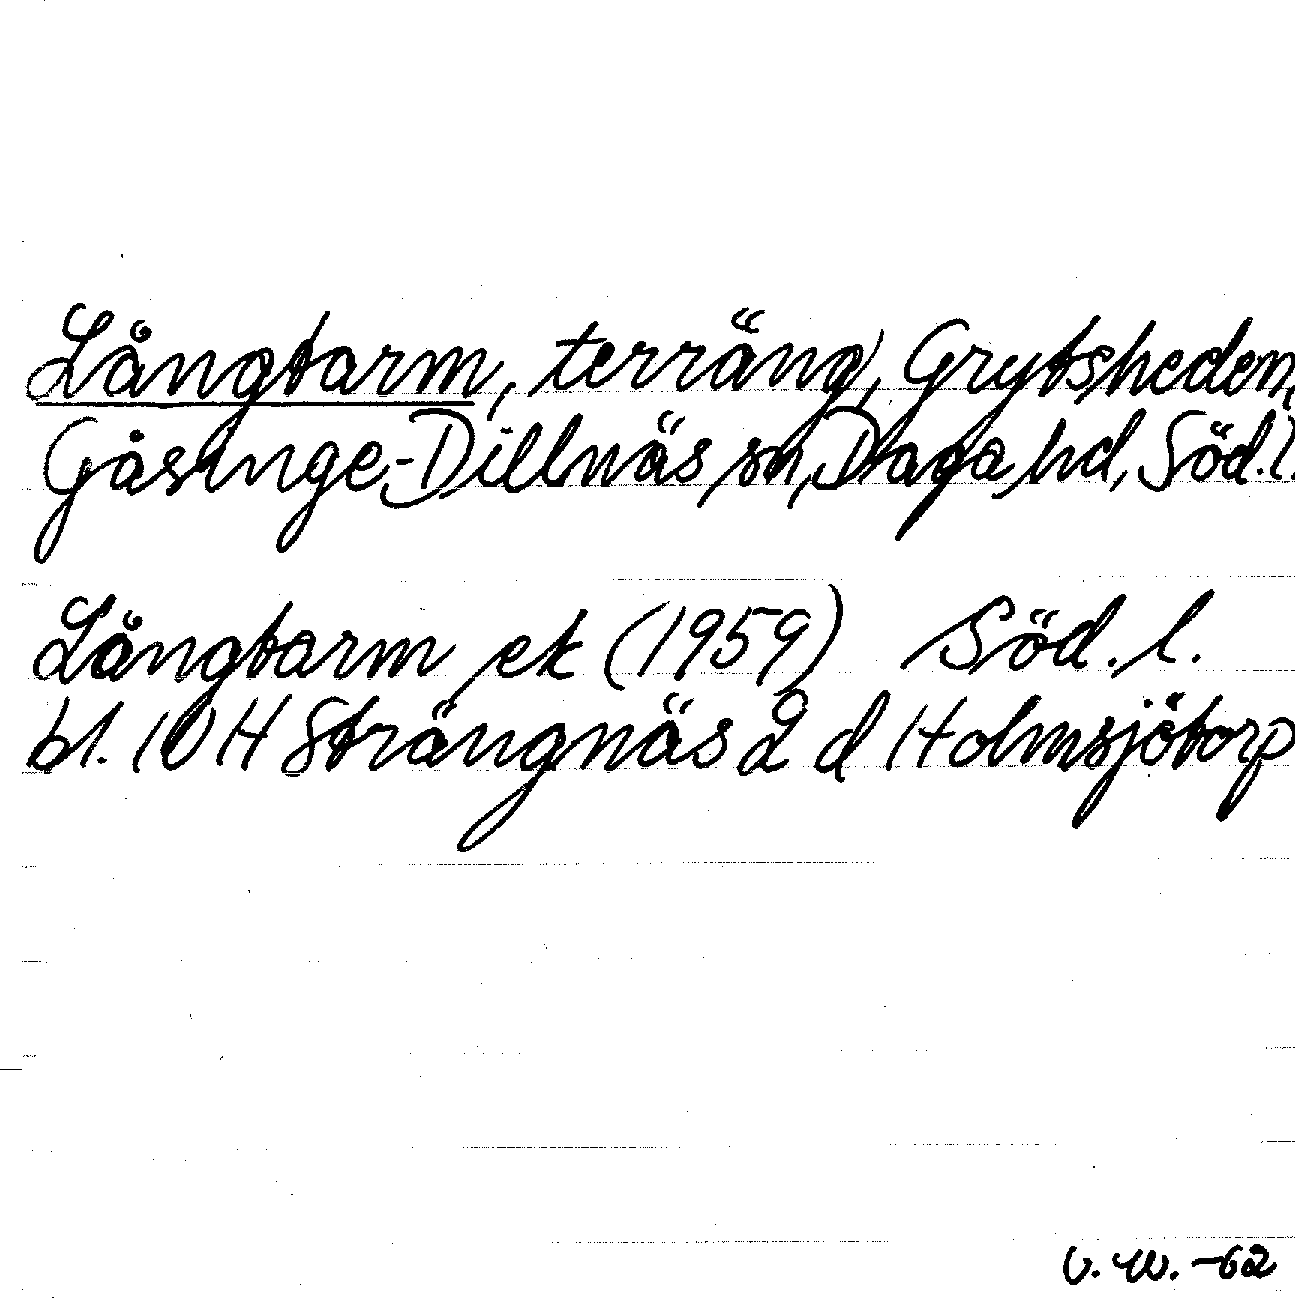 Långtarm, terräng, Grytsheden,
Gåsinge-Dillnäs sn, Daga hd, Söd.l.
Långtarm ek (1959) Söd. l.
bl. 10 H Strängnäs 2 d Holmsjötorp
V. W. -62